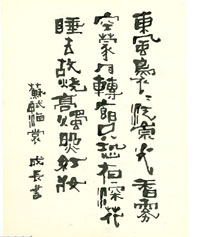 東風裊々泛崇光香霧
空蒙月轉廊只恐夜深花
睡去故燒高燭照紅妝
蘇軾海棠 成長書